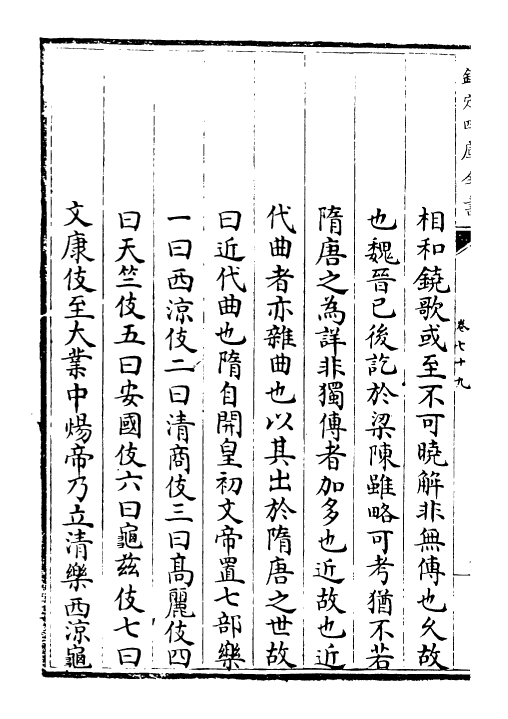 欽定四庫全書
卷七十九
相和鐃歌或至不可曉解非無傳也乆故
也魏晉已後訖於梁陳雖略可考猶不若
隋唐之為詳非獨傳者加多也近故也近
代曲者亦雜曲也以其出於隋唐之世故
曰近代曲也隋自開皇初文帝置七部樂
一曰西涼伎二曰清商伎三曰髙麗伎四
曰天竺伎五曰安國伎六曰龜兹伎七曰
文康伎至大業中煬帝乃立清樂西涼龜